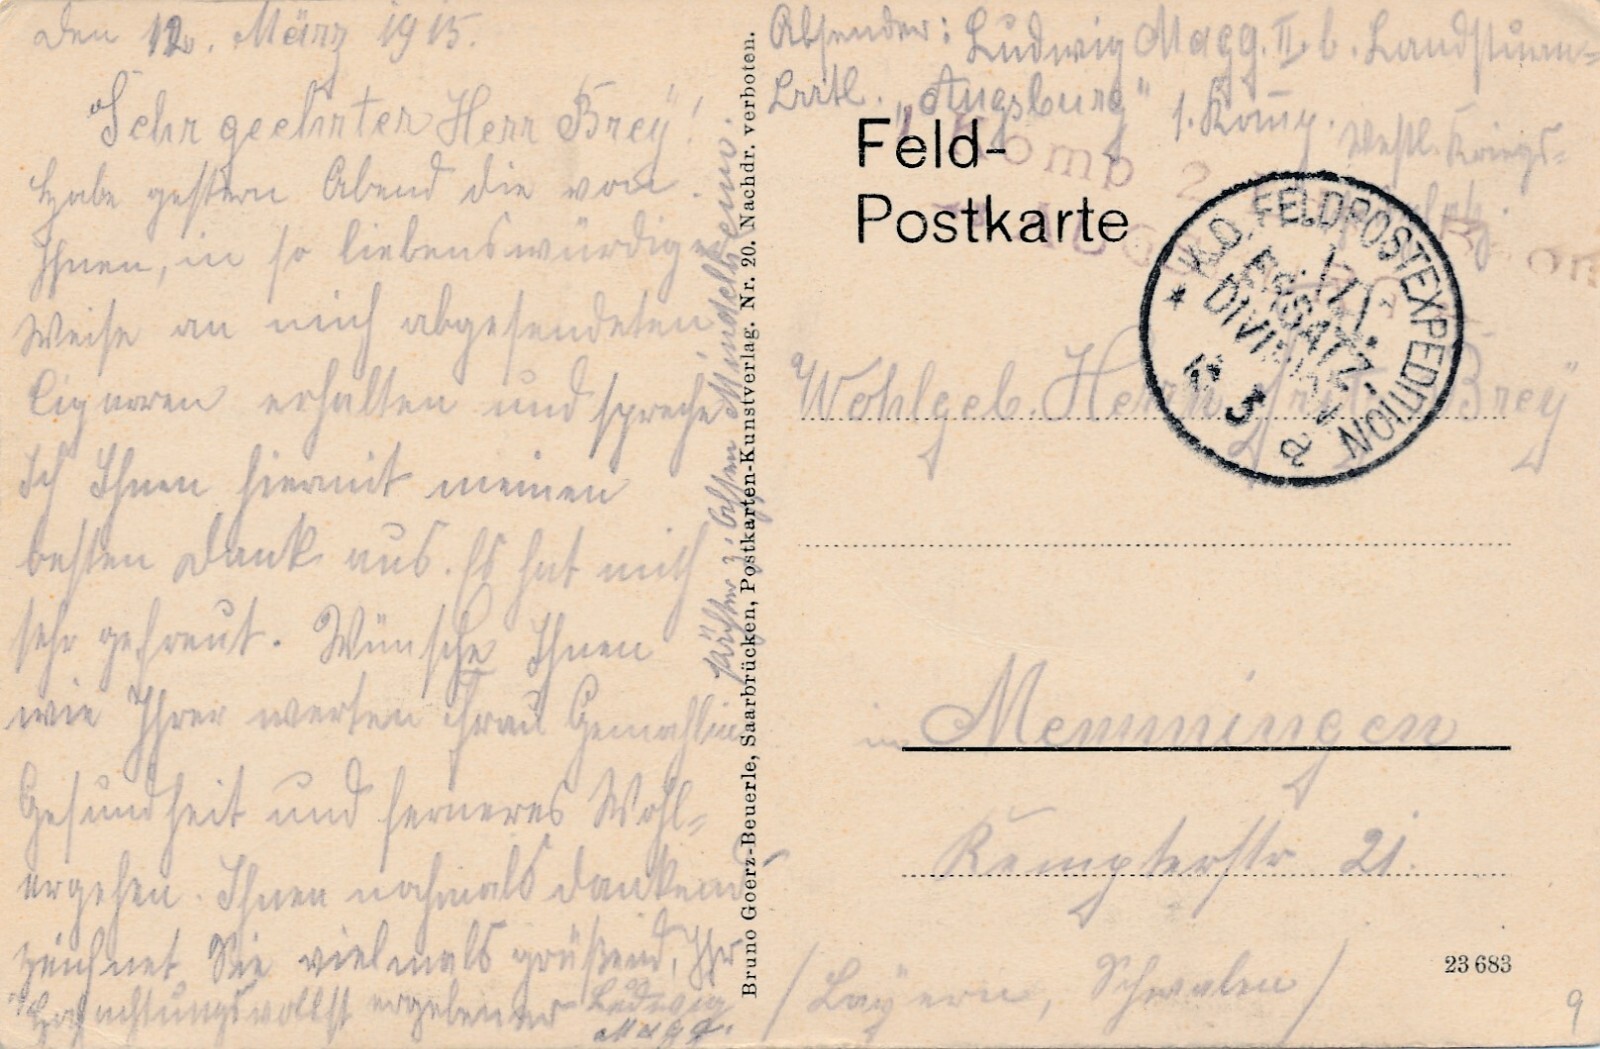 den 12. März 1915.
Sehr geehrter Herr Brey!
Habe gestern Abend die von
Ihnen, in so liebenswürdiger
Weise an mich abgesendeten
Cigarren erhalten und spreche
Ich Ihnen hiermit meinen
besten Dank aus. Es hat mich
sehr gefreut. Wünsche Ihnen
wie Ihrer werten Frau Gemahlin
Gesundheit und ferneres Wohl=
ergehen. Ihnen nochmals dankend
zeichnet Sie vielmals grüßend, Ihr
Hochachtungsvollst ergebener Ludwig
Magg.
z. Ochsen Mindelheim.
Bruno Goerz-Beuerle, Saarbrücken, Postkarten-Kunstverlag. Nr. 20. Nachdr. verboten.
Absender: Ludwig Magg. II. b. Landsturm=
Batl. "Augsburg" 1. Komp. Westl. Kriegs=
Feld-
Postkarte
Komp 2
K.D. FELDPOSTEXPEDITION
ERSATZ
DIVISION
13 3
a
Wohlgeb. Herrn Brey
in Memmingen
Kempterstr 21.
/ Bayern, Schwaben /
23 683
9